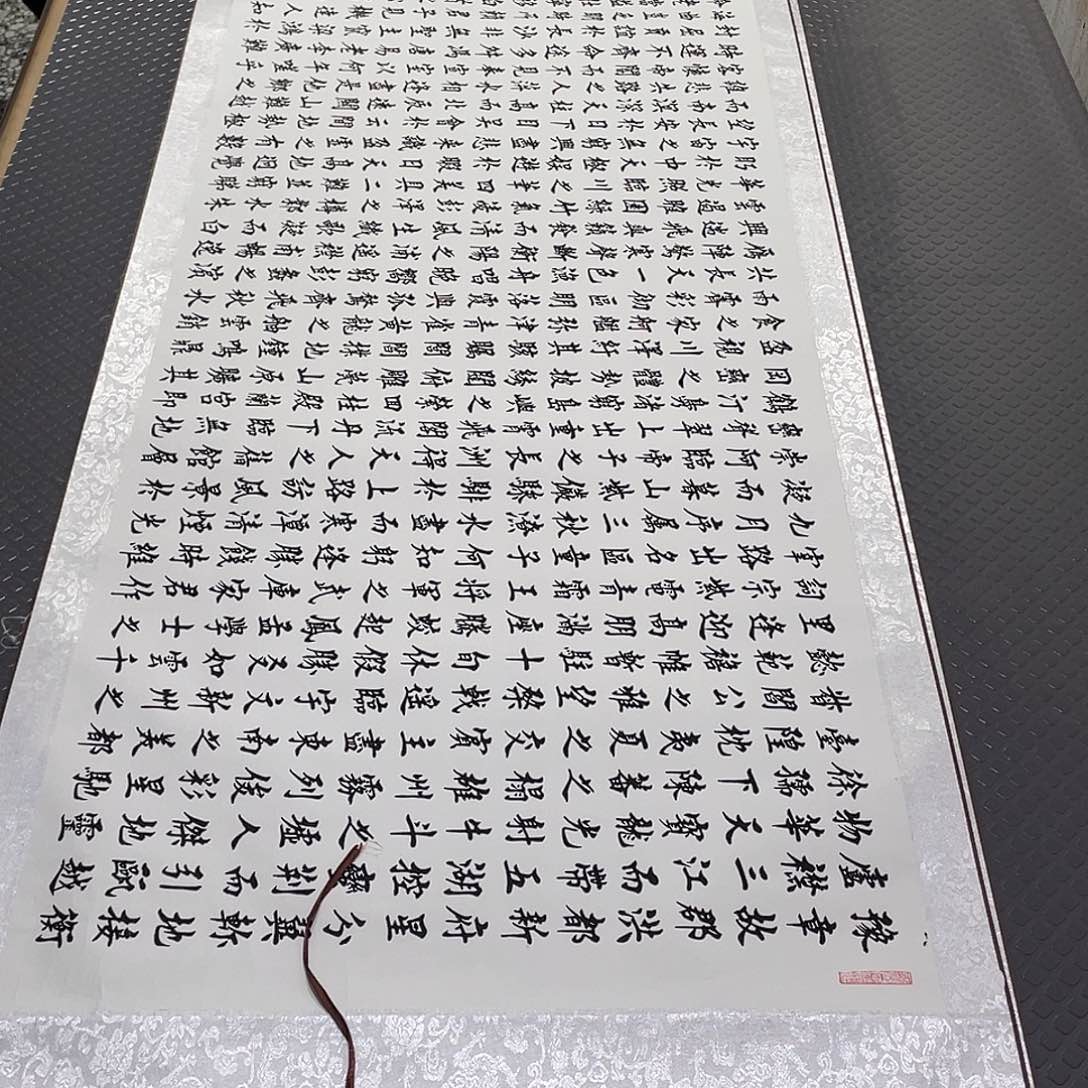 豫章故郡洪都新府星分翼軫地接衡
廬襟三江而帶五湖控蠻荊而引甌越
物華天寶龍光射牛斗之墟人傑地靈
徐孺下陳蕃之榻雄州霧列俊彩星馳
臺隍枕夷夏之交賓主盡東南之美都
督閻公之雅望棨戟遙臨宇文新州之
懿範襜帷暫駐十旬休假勝友如雲千
里逢迎高朋滿座騰蛟起鳳孟學士之
詞宗紫電青霜王將軍之武庫家君作
宰路出名區童子何知躬逢勝餞時維
九月序屬三秋潦水盡而寒潭清煙光
凝而暮山紫儼驂騑於上路訪風景於
崇阿臨帝子之長洲得天人之舊館層
巒聳翠上出重霄飛閣流丹下臨無地
鶴汀渚窮島嶼之縈回桂殿蘭宮即
岡巒之體勢披繡闥俯雕甍山原曠其
盈視川澤紆其駭矚閭閻撲地鐘鳴鼎
食之家舸艦彌津青雀黃龍之舳雲銷
雨霽彩徹區明落霞與孤鶩齊飛秋水
共長天一色漁舟唱晚響窮彭蠡之濱
雁陣驚寒聲斷衡陽之浦遙襟甫暢逸
興遄飛爽籟發而清風生纖歌凝而白
雲遏睢園綠竹氣凌彭澤之樽鄴水朱
華光照臨川之筆四美具二難并窮睇
眄於中天極娛遊於暇日天高地迥覺
宇宙之無窮興盡悲來識盈虛之有數
望長安於日下目吳會於雲間地勢極
而南溟深天柱高而北辰遠關山難越